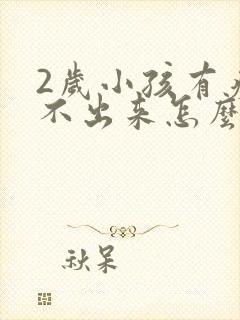 2歲小孩有
不出来怎麼
秋呆